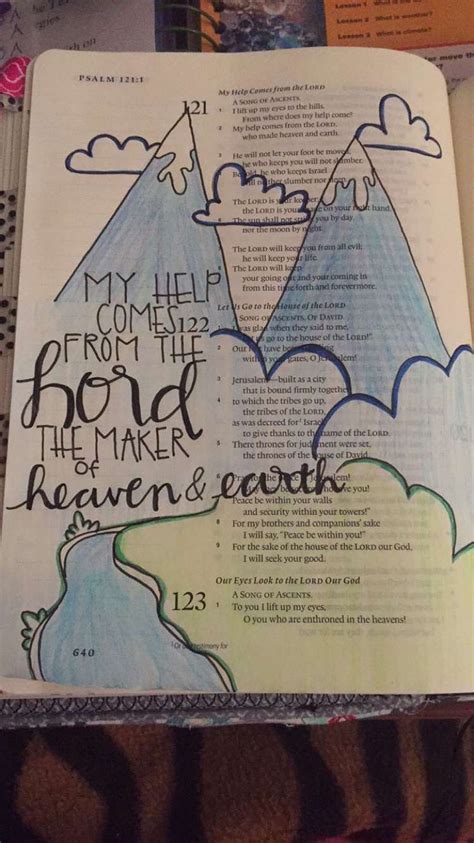 Lesson 1
Lesson 2 What is weather?
Lesson 3 What is climate?
PSALM 121:1
My Help Comes from the LORD
121
A SONG OF ASCENTS.
1 I lift up my eyes to the hills.
From where does my help come?
2 My help comes from the LORD,
who made heaven and earth.
3 He will not let your foot be moved;
he who keeps you will not slumber.
he who keeps Israel
will neither slumber nor
The LORD is your keeper;
the LORD is your shade on your right hand.
The sun shall not you by day,
nor the moon by night.
The LORD will keep you from all evil;
he will keep your life.
The LORD will keep
your going out and your coming in
from this time forth and forevermore.
MY HELP
COMES
FROM THE
Lord
THE MAKER
of
heaven & earth
Let Us Go to the House of the LORD
122
A SONG OF ASCENTS. OF DAVID.
1 I was glad when they said to me,
us go to the house of the LORD!"
2 Our been
within your gates, O Jerusalem!
3 Jerusalem—built as a city
that is bound firmly together,
4 to which the tribes go up,
the tribes of the LORD,
as was decreed for Israel,
to give thanks to the name of the LORD.
5 There thrones for judgment were set,
the thrones of the house of David.
6 Pray for the peace of Jerusalem!
who love you!
Peace be within your walls
and security within your towers!"
8 For my brothers and companions' sake
I will say, "Peace be within you!"
9 For the sake of the house of the LORD our God,
I will seek your good.
Our Eyes Look to the LORD Our God
123
A SONG OF ASCENTS.
1 To you I lift up my eyes,
O you who are enthroned in the heavens!
640
1 Or testimony for